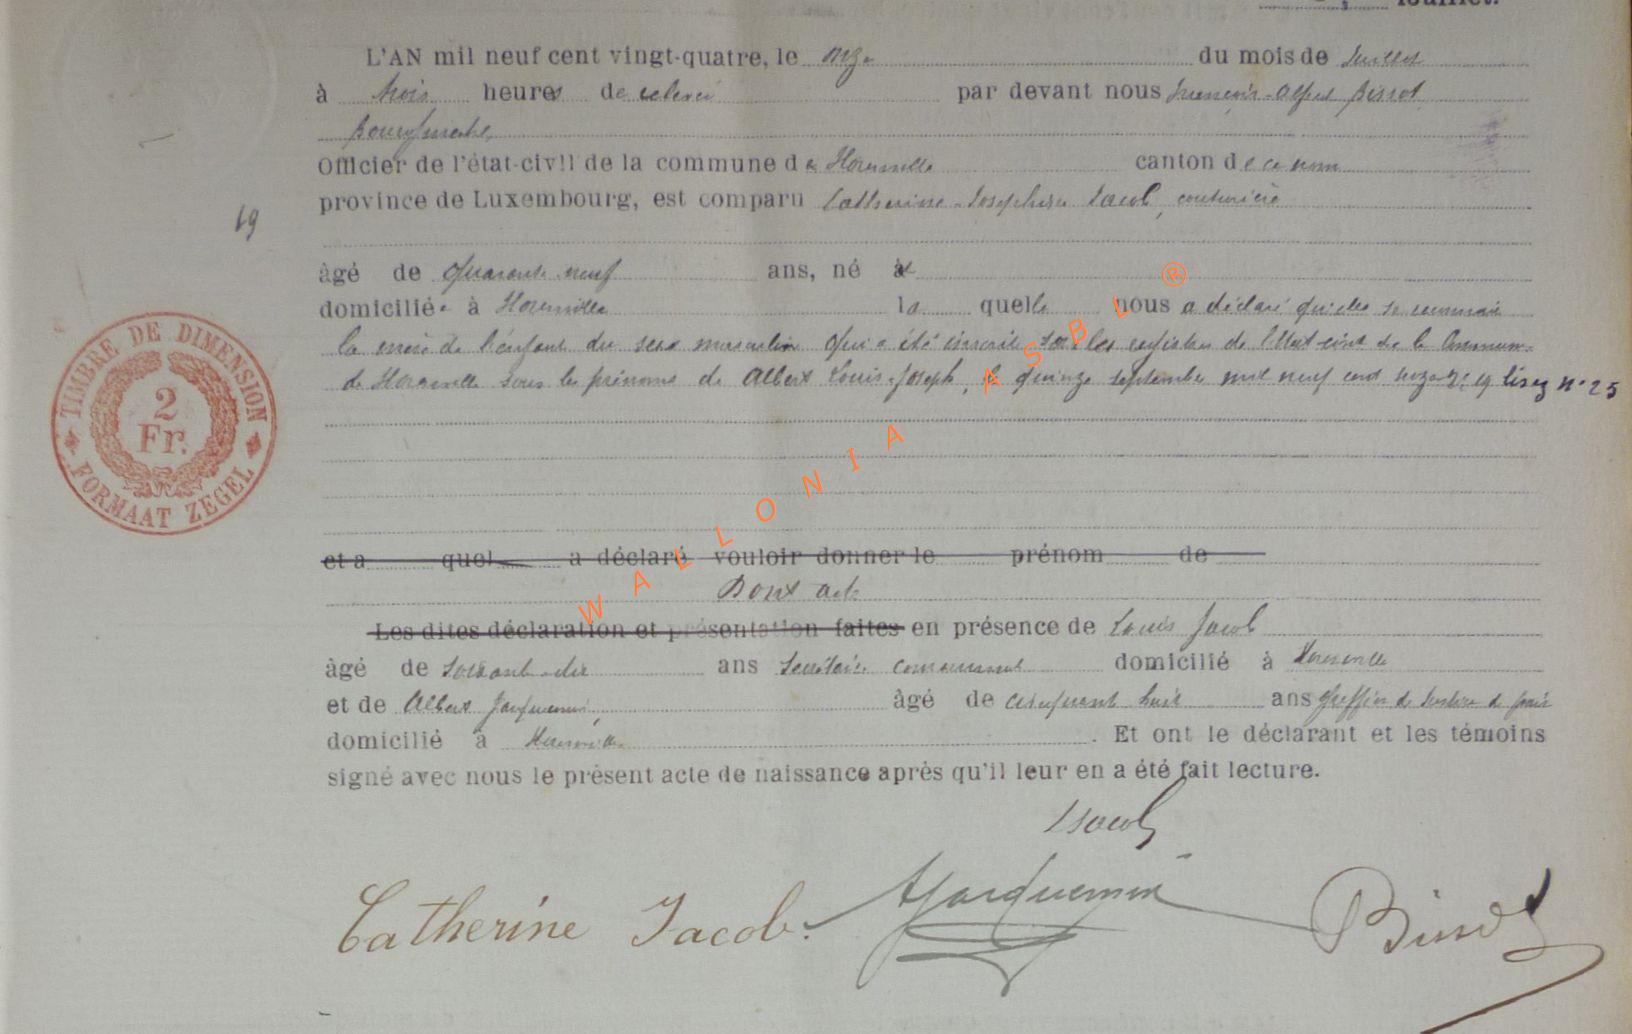 juillet.
L'AN mil neuf cent vingt-quatre, le onze du mois de Juillet
à trois heures de relevée par devant nous François-Alfred Bissot
Bourgmestre,
Officier de l'état-civil de la commune de Houmville canton de ce nom
province de Luxembourg, est comparu Catherine-Joséphine Jacob, couturière
19
âgé de quarante neuf ans, né à
domiciliée à la quelle nous a déclaré qu'elle se reconnait
la mère de l'enfant du sexe masculin qui a été inscrit sur les registres de l'Etat-civil de la Commune
de sous les prénoms de Albert Louis-Joseph, le quinze septembre mil neuf cent lisez n° 25
TIMBRE DE DIMENSION
2
Fr.
FORMAAT ZEGEL
et a quel a déclaré vouloir donner le prénom de
Dont acte
Les dites déclaration et présentation faites en présence de Louis Jacob
âgé de soixante-dix ans secrétaire communal domicilié à
et de Albert Jacquemin, âgé de cinquante huit ans greffier de Justice de paix
domicilié à . Et ont le déclarant et les témoins
signé avec nous le présent acte de naissance après qu'il leur en a été fait lecture.
LJacob
Catherine Jacob. AJacquemin Bissot
WALLONIA ASBL ®